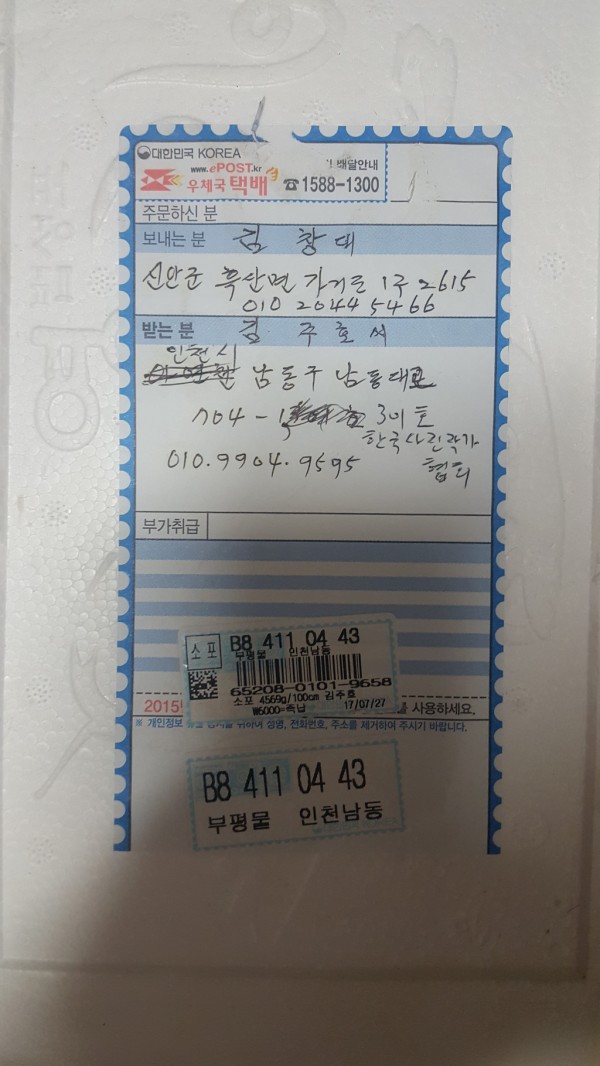 대한민국 KOREA
www.ePOST.kr
배달안내
우체국 택배
☎1588-1300
주문하신 분
보내는 분 김 창 대
신안군 흑산면 가거도 1구 2615
010 2044 5466
받는 분 김 주 호 씨
인천시
남동구 남동대로
704-1, 301호
한국사진작가
010.9904.9595 협회
부가취급
소포 B8 411 04 43
부평물 인천남동
65208-0101-9658
소포 4569g/100cm 김주호
₩5000=즉납 17/07/27
2015 사용하세요.
※ 개인정보 위하여 성명, 전화번호, 주소를 제거하여 주시기 바랍니다.
B8 411 04 43
부평물 인천남동